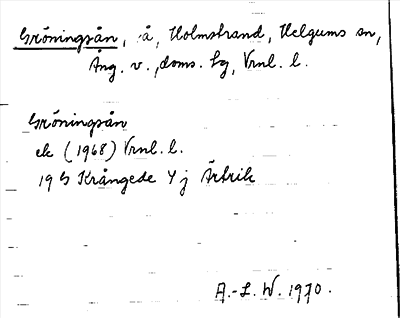 Gröningsån, å, Holmstrand, Helgums sn,
Ång. v., doms. hg, Vrnl. l.
Gröningsån
ek (1968) Vrnl. l.
19 G Krångede 4 j
A.-L. W. 1970.